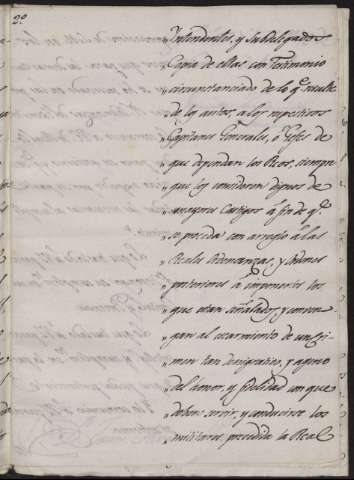 2º
"Yntendentes, y Subdelegados
"Copia de ellas con Testimonio
"circunstanciado de lo q.e resulte
"de los autos, a los respectivos
"Capitanes Generales, ó Gefes de
"que dependan los Reos, siempre
"que los consideren dignos de
"mayores Castigos á fin de q.e
"se proceda con arreglo á las
"Reales Ordenanzas, y Ordenes
"posteriores á imponerles los
"que estan señalados, y conven
"gan al escarmiento de un Cri
"men tan denigrativo, y ageno
"del honor, y fidelidad con que
"deben servir, y conducirse los
"militares, precedida la Real